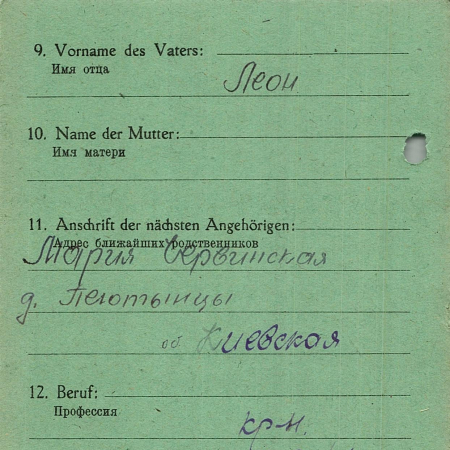 9. Vorname des Vaters:
Имя отца
Леон
10. Name der Mutter:
Имя матери
11. Anschrift der nächsten Angehörigen:
Адрес ближайших родственников
Мария Сервинская
д.
об Киевская
12. Beruf:
Профессия
кр-н.